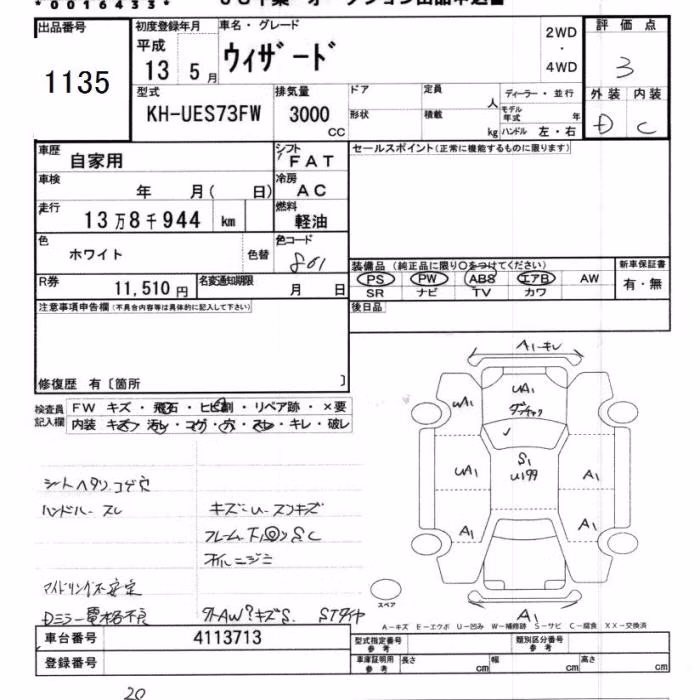 *0016433*
出品番号
1135
初度登録年月
平成
13 5月
車名・グレード
ウィザード
2WD
・
4WD
評価点
3
外装 内装
D C
型式
KH-UES73FW
排気量
3000
CC
ドア
定員
人
ディーラー・並行
モデル年式 年
形状
積載
kg
ハンドル 左・右
車歴
自家用
シフト
FAT
セールスポイント(正常に機能するものに限ります)
車検
年 月( 日)
冷房
AC
走行
13万8千944 km
燃料
軽油
色
ホワイト
色替
色コード
801
装備品 (純正品に限り〇をつけてください)
PS PW ABS エアB AW
SR ナビ TV カワ
新車保証書
有・無
R券
11,510円
名変通知期限
月 日
後日品
注意事項申告欄(不具合内容等は具体的に記入して下さい)
修復歴 有〔箇所 〕
検査員記入欄
FW キズ・飛石・ヒビ割・リペア跡・×要
内装 キズ・汚レ・コゲ・穴・スレ・キレ・破レ
シートヘタリ コゲ穴
ハンドル スレ
キズ
オイルニジミ
アイドリング不安定
Dミラー電格不良
A1キレ
UA1
UA1
S1
U199
UA1
A1
A1
A1
A1
スペア
A-キズ E-エクボ U-凹み W-補修跡 S-サビ C-腐食 XX-交換済
車台番号
4113713
登録番号
型式指定番号
参考
類別区分番号
参考
車庫証明用
参考
長さ cm
幅 cm
高さ cm
20